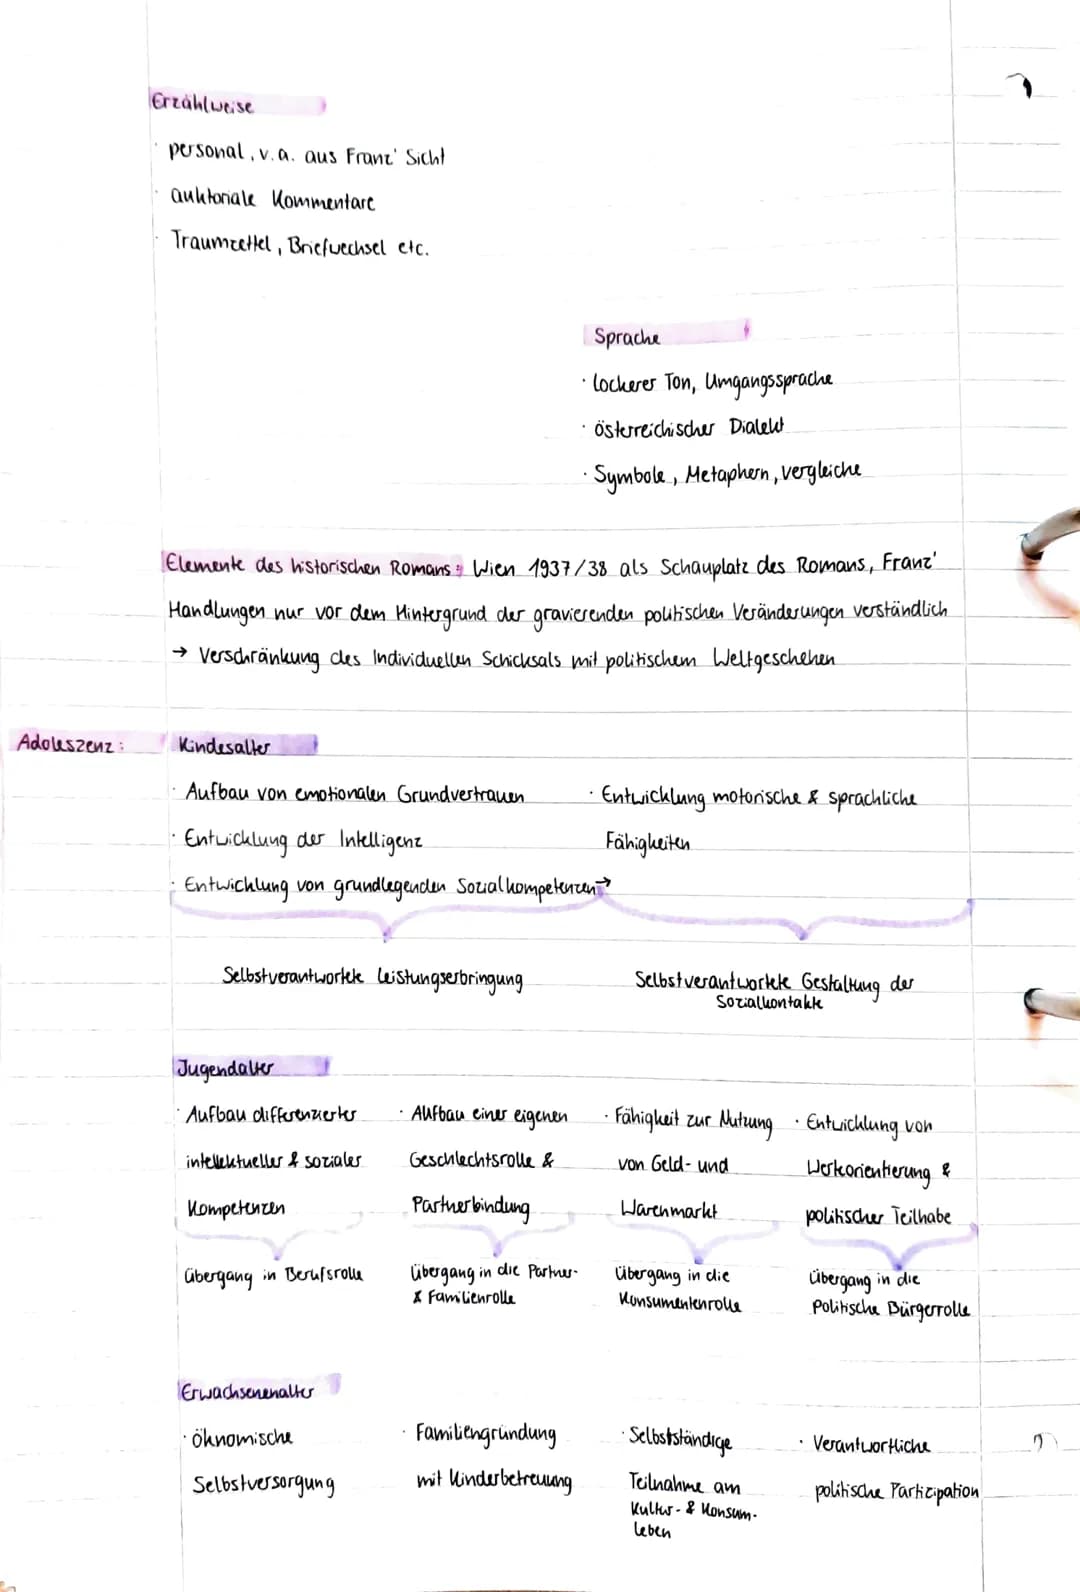 Erzählweise
· personal, v.a. aus Franz' Sicht
· auktoriale Kommentare
· Traumzettel, Briefwechsel etc.
Sprache
· lockerer Ton, Umgangssprache
· österreichischer Dialekt
· Symbole, Metaphern, Vergleiche
Elemente des historischen Romans: Wien 1937/38 als Schauplatz des Romans, Franz'
Handlungen nur vor dem Hintergrund der gravierenden politischen Veränderungen verständlich
→ Verschränkung des Individuellen Schicksals mit politischem Weltgeschehen
Adoleszenz: Kindesalter
· Aufbau von emotionalen Grundvertrauen · Entwicklung motorische & sprachliche
· Entwicklung der Intelligenz Fähigkeiten
· Entwicklung von grundlegenden Sozialkompetenzen →
Selbstverantwortete Leistungserbringung Selbstverantwortete Gestaltung der
Sozialkontakte
Jugendalter
· Aufbau differenzierter · Aufbau einer eigenen · Fähigkeit zur Nutzung · Entwicklung von
intellektueller & sozialer Geschlechtsrolle & von Geld- und Werkorientierung &
Kompetenzen Partnerbindung Warenmarkt politischer Teilhabe
Übergang in Berufsrolle Übergang in die Partner- Übergang in die Übergang in die
& Familienrolle Konsumentenrolle Politische Bürgerrolle
Erwachsenenalter
· Öknomische · Familiengründung · Selbstständige · Verantwortliche
Selbstversorgung mit Kinderbetreuung Teilnahme am politische Partizipation
Kultur- & Konsum-
leben